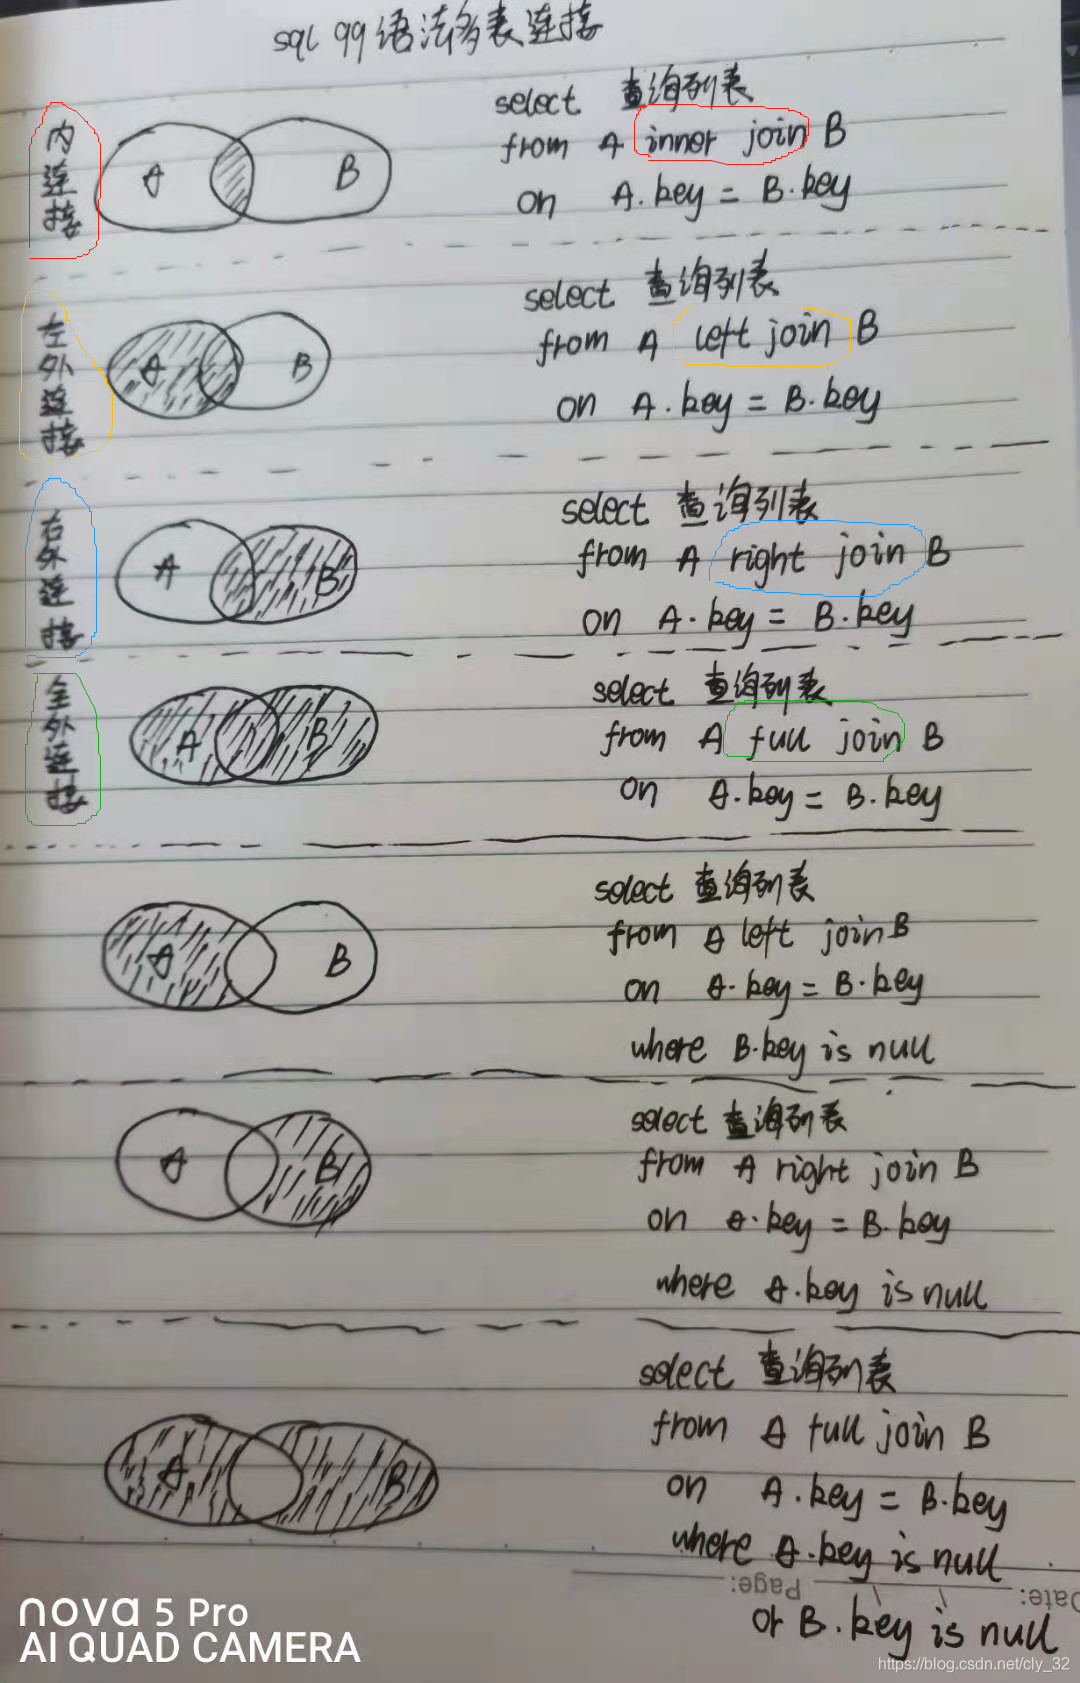 sql 99语法多表连接
内连接
A B
select 查询列表
from A inner join B
on A.key = B.key
左外连接
A B
select 查询列表
from A left join B
on A.key = B.key
右外连接
A B
select 查询列表
from A right join B
on A.key = B.key
全外连接
A B
select 查询列表
from A full join B
on A.key = B.key
A B
select 查询列表
from A left join B
on A.key = B.key
where B.key is null
A B
select 查询列表
from A right join B
on A.key = B.key
where A.key is null
A B
select 查询列表
from A full join B
on A.key = B.key
where A.key is null
Date: Page:
or B.key is null
nova 5 Pro
AI QUAD CAMERA
https://blog.csdn.net/cly_32